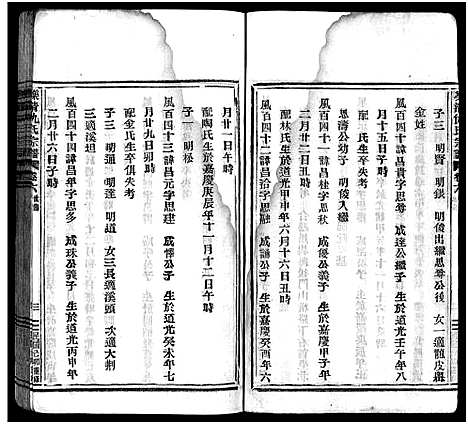 子三 明賢 明鋇 明俊出繼思尋公後 女一適髓皮與
金姓
風百四十一諱昌貴字思尋 成達公繼子 生於道光壬午年八
月廿二日丑時
配林氏生於道光甲申年六月十六日丑時
恩濟公子 明俊入繼
風百四十二諱昌桂字思秋 成優公子 生於嘉慶甲子年
配氏生卒俱失考
風百四十三諱昌治字思融 成 公子 生於嘉慶癸酉年六
月廿一日午時
配陶氏生於嘉慶庚辰年十一月十二日午時
子一 明松
風百四十三諱昌元字思建 成悌公子 生於道光癸未年七
月廿九日卯時
配金氏生卒俱失考
子三 明通 明達 明道 女三長適溪頭 次適大判
三適溪坦
風百四十四諱昌年字思多 成珠公義子 生於道光丙申年
二月廿六日子時